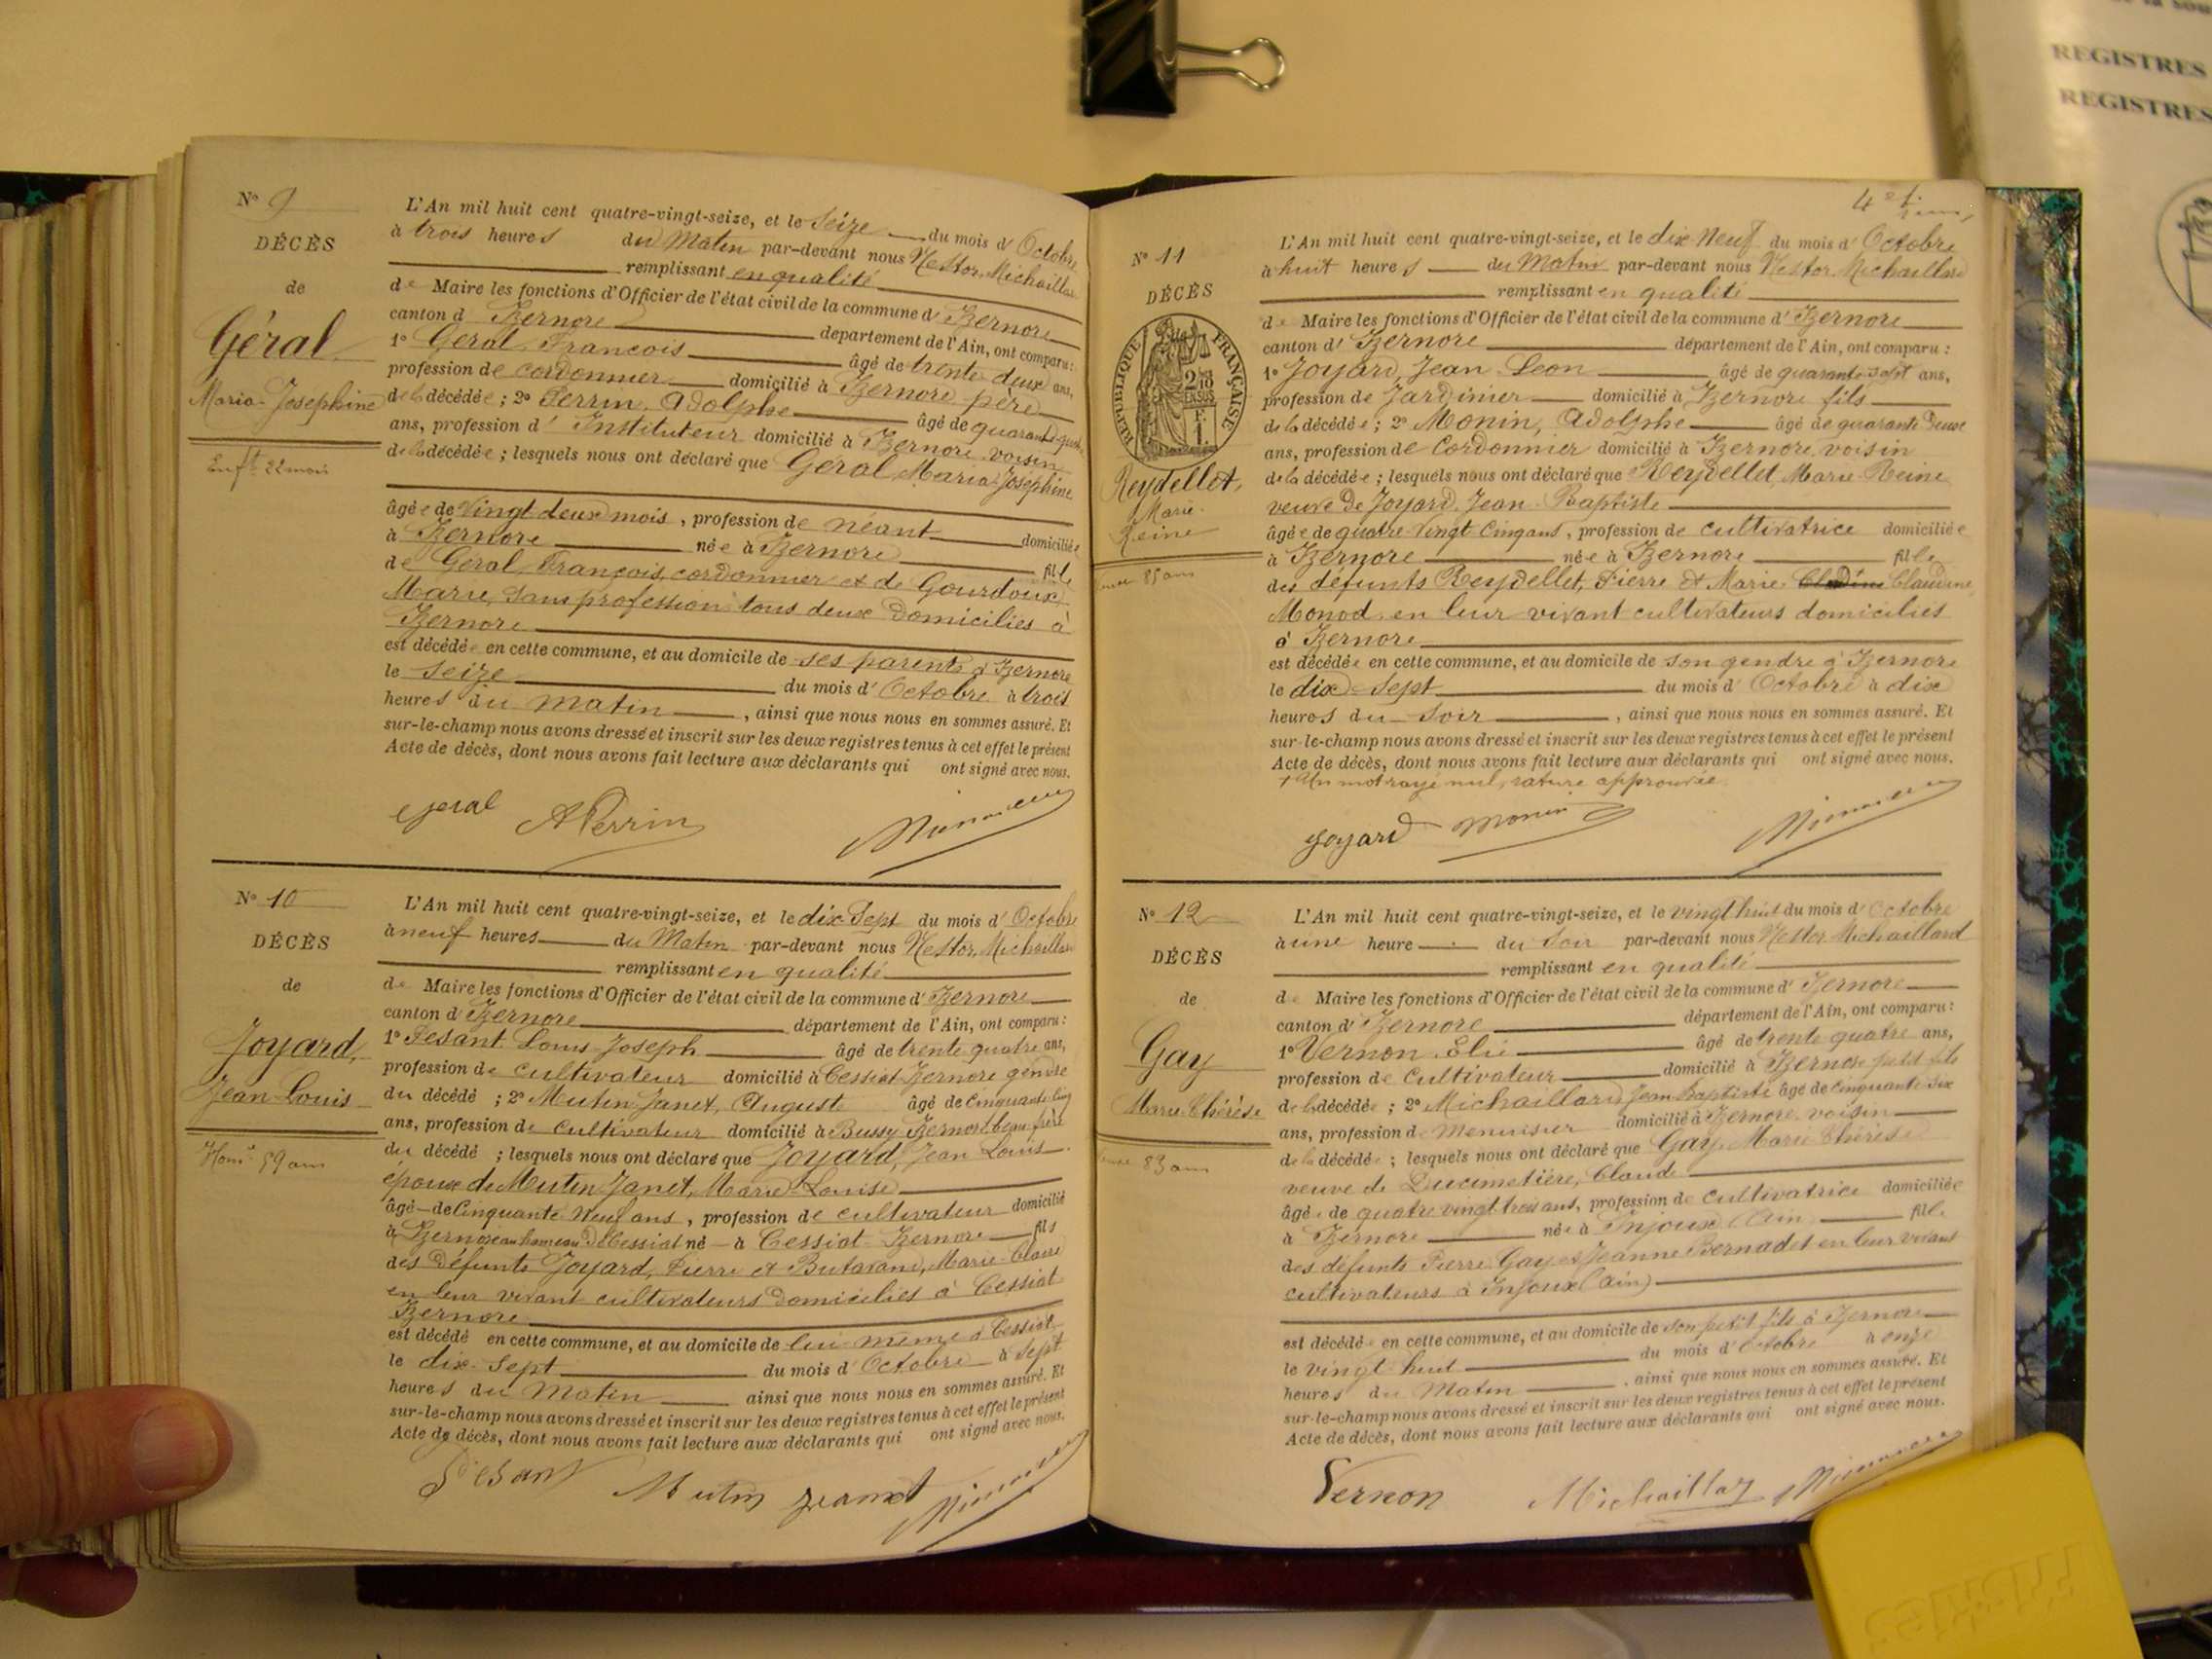 N° 9
DÉCÈS
de
Géral
Maria-Josephine
Enft 22 mois
L'An mil huit cent quatre-vingt-seize, et le Seize du mois d'Octobre
à trois heures du Matin par-devant nous Nestor, Michaillard
remplissant en qualité
de Maire les fonctions d'Officier de l'état civil de la commune d'Izernore
canton d'Izernore département de l'Ain, ont comparu :
1° Géral François âgé de trente deux ans,
profession de cordonnier domicilié à Izernore père
de la décédée ; 2° Perrin, Adolphe âgé de quarante
ans, profession d'Instituteur domicilié à Izernore voisin
de la décédée ; lesquels nous ont déclaré que Géral Maria Josephine
âgée de Vingt deux mois, profession de néant domiciliée
à Izernore née à Izernore fille
de Géral, François, cordonnier et de Gourdoux
Marie, sans profession tous deux domiciliés à
Izernore
est décédée en cette commune, et au domicile de ses parents à Izernore
le Seize du mois d'Octobre à trois
heures du matin, ainsi que nous nous en sommes assuré. Et
sur-le-champ nous avons dressé et inscrit sur les deux registres tenus à cet effet le présent
Acte de décès, dont nous avons fait lecture aux déclarants qui ont signé avec nous.
Geral A Perrin
N° 10
DÉCÈS
de
Joyard,
Jean-Louis
Hom. 59 ans
L'An mil huit cent quatre-vingt-seize, et le dix-Sept du mois d'Octobre
à neuf heures du Matin par-devant nous Nestor, Michaillard
remplissant en qualité
de Maire les fonctions d'Officier de l'état civil de la commune d'Izernore
canton d'Izernore département de l'Ain, ont comparu :
1° Pesant Louis Joseph âgé de trente quatre ans,
profession de cultivateur domicilié à Cessiat-Izernore gendre
du décédé ; 2° Mutin-Janet, Auguste âgé de Cinquante Cinq
ans, profession de cultivateur domicilié à Bussy Izernore beau-frère
du décédé ; lesquels nous ont déclaré que Joyard, Jean Louis
époux de Mutin Janet, Marie-Louise
âgé de Cinquante Neuf ans, profession de cultivateur domicilié
à Izernore au hameau de Cessiat né à Cessiat-Izernore fils
des défunts Joyard, Pierre et Butavand, Marie-Claire
en leur vivant cultivateurs domiciliés à Cessiat
Izernore
est décédé en cette commune, et au domicile de lui même à Cessiat
le dix-Sept du mois d'Octobre à Sept
heures du Matin ainsi que nous nous en sommes assuré. Et
sur-le-champ nous avons dressé et inscrit sur les deux registres tenus à cet effet le présent
Acte de décès, dont nous avons fait lecture aux déclarants qui ont signé avec nous.
Pesant Mutin Janet
4e f.
N° 11
DÉCÈS
RÉPUBLIQUE FRANÇAISE
2/10
EN SUS
F
1.
Reydellet,
Marie-
Reine
veuve 85 ans
L'An mil huit cent quatre-vingt-seize, et le dix Neuf du mois d'Octobre
à huit heures du Matin par-devant nous Nestor Michaillard
remplissant en qualité
de Maire les fonctions d'Officier de l'état civil de la commune d'Izernore
canton d'Izernore département de l'Ain, ont comparu :
1° Joyard, Jean Leon âgé de quarante-sept ans,
profession de Jardinier domicilié à Izernore fils
de la décédée ; 2° Monin, Adolphe âgé de quarante Deux
ans, profession de Cordonnier domicilié à Izernore voisin
de la décédée ; lesquels nous ont déclaré que Reydellet, Marie-Reine
veuve de Joyard, Jean-Baptiste
âgée de quatre-vingt Cinq ans, profession de cultivatrice domiciliée
à Izernore née à Izernore fille
des défunts Reydellet, Pierre et Marie Claudine
Monod, en leur vivant cultivateurs domiciliés
à Izernore
est décédée en cette commune, et au domicile de son gendre à Izernore
le dix-Sept du mois d'Octobre à dix
heures du Soir, ainsi que nous nous en sommes assuré. Et
sur-le-champ nous avons dressé et inscrit sur les deux registres tenus à cet effet le présent
Acte de décès, dont nous avons fait lecture aux déclarants qui ont signé avec nous.
+ Un mot rayé nul, rature approuvée
Joyard Monin
N° 12
DÉCÈS
de
Gay
Marie Thérèse
veuve 83 ans
L'An mil huit cent quatre-vingt-seize, et le vingt huit du mois d'Octobre
à une heure du Soir par-devant nous Nestor Michaillard
remplissant en qualité
de Maire les fonctions d'Officier de l'état civil de la commune d'Izernore
canton d'Izernore département de l'Ain, ont comparu :
1° Vernon Elie âgé de trente quatre ans,
profession de Cultivateur domicilié à Izernore petit fils
de la décédée ; 2° Michaillard Jean Baptiste âgé de Cinquante Six
ans, profession de Menuisier domicilié à Izernore voisin
de la décédée ; lesquels nous ont déclaré que Gay, Marie Thérèse
veuve de Ducimetière, Claude
âgée de quatre vingt trois ans, profession de Cultivatrice domiciliée
à Izernore née à Injoux (Ain) fille
des défunts Pierre Gay et Jeanne Bernadet en leur vivant
cultivateurs à Injoux (Ain)
est décédée en cette commune, et au domicile de son petit fils à Izernore
le vingt huit du mois d'Octobre à onze
heures du Matin, ainsi que nous nous en sommes assuré. Et
sur-le-champ nous avons dressé et inscrit sur les deux registres tenus à cet effet le présent
Acte de décès, dont nous avons fait lecture aux déclarants qui ont signé avec nous.
Vernon Michaillard
REGISTRES
REGISTRES